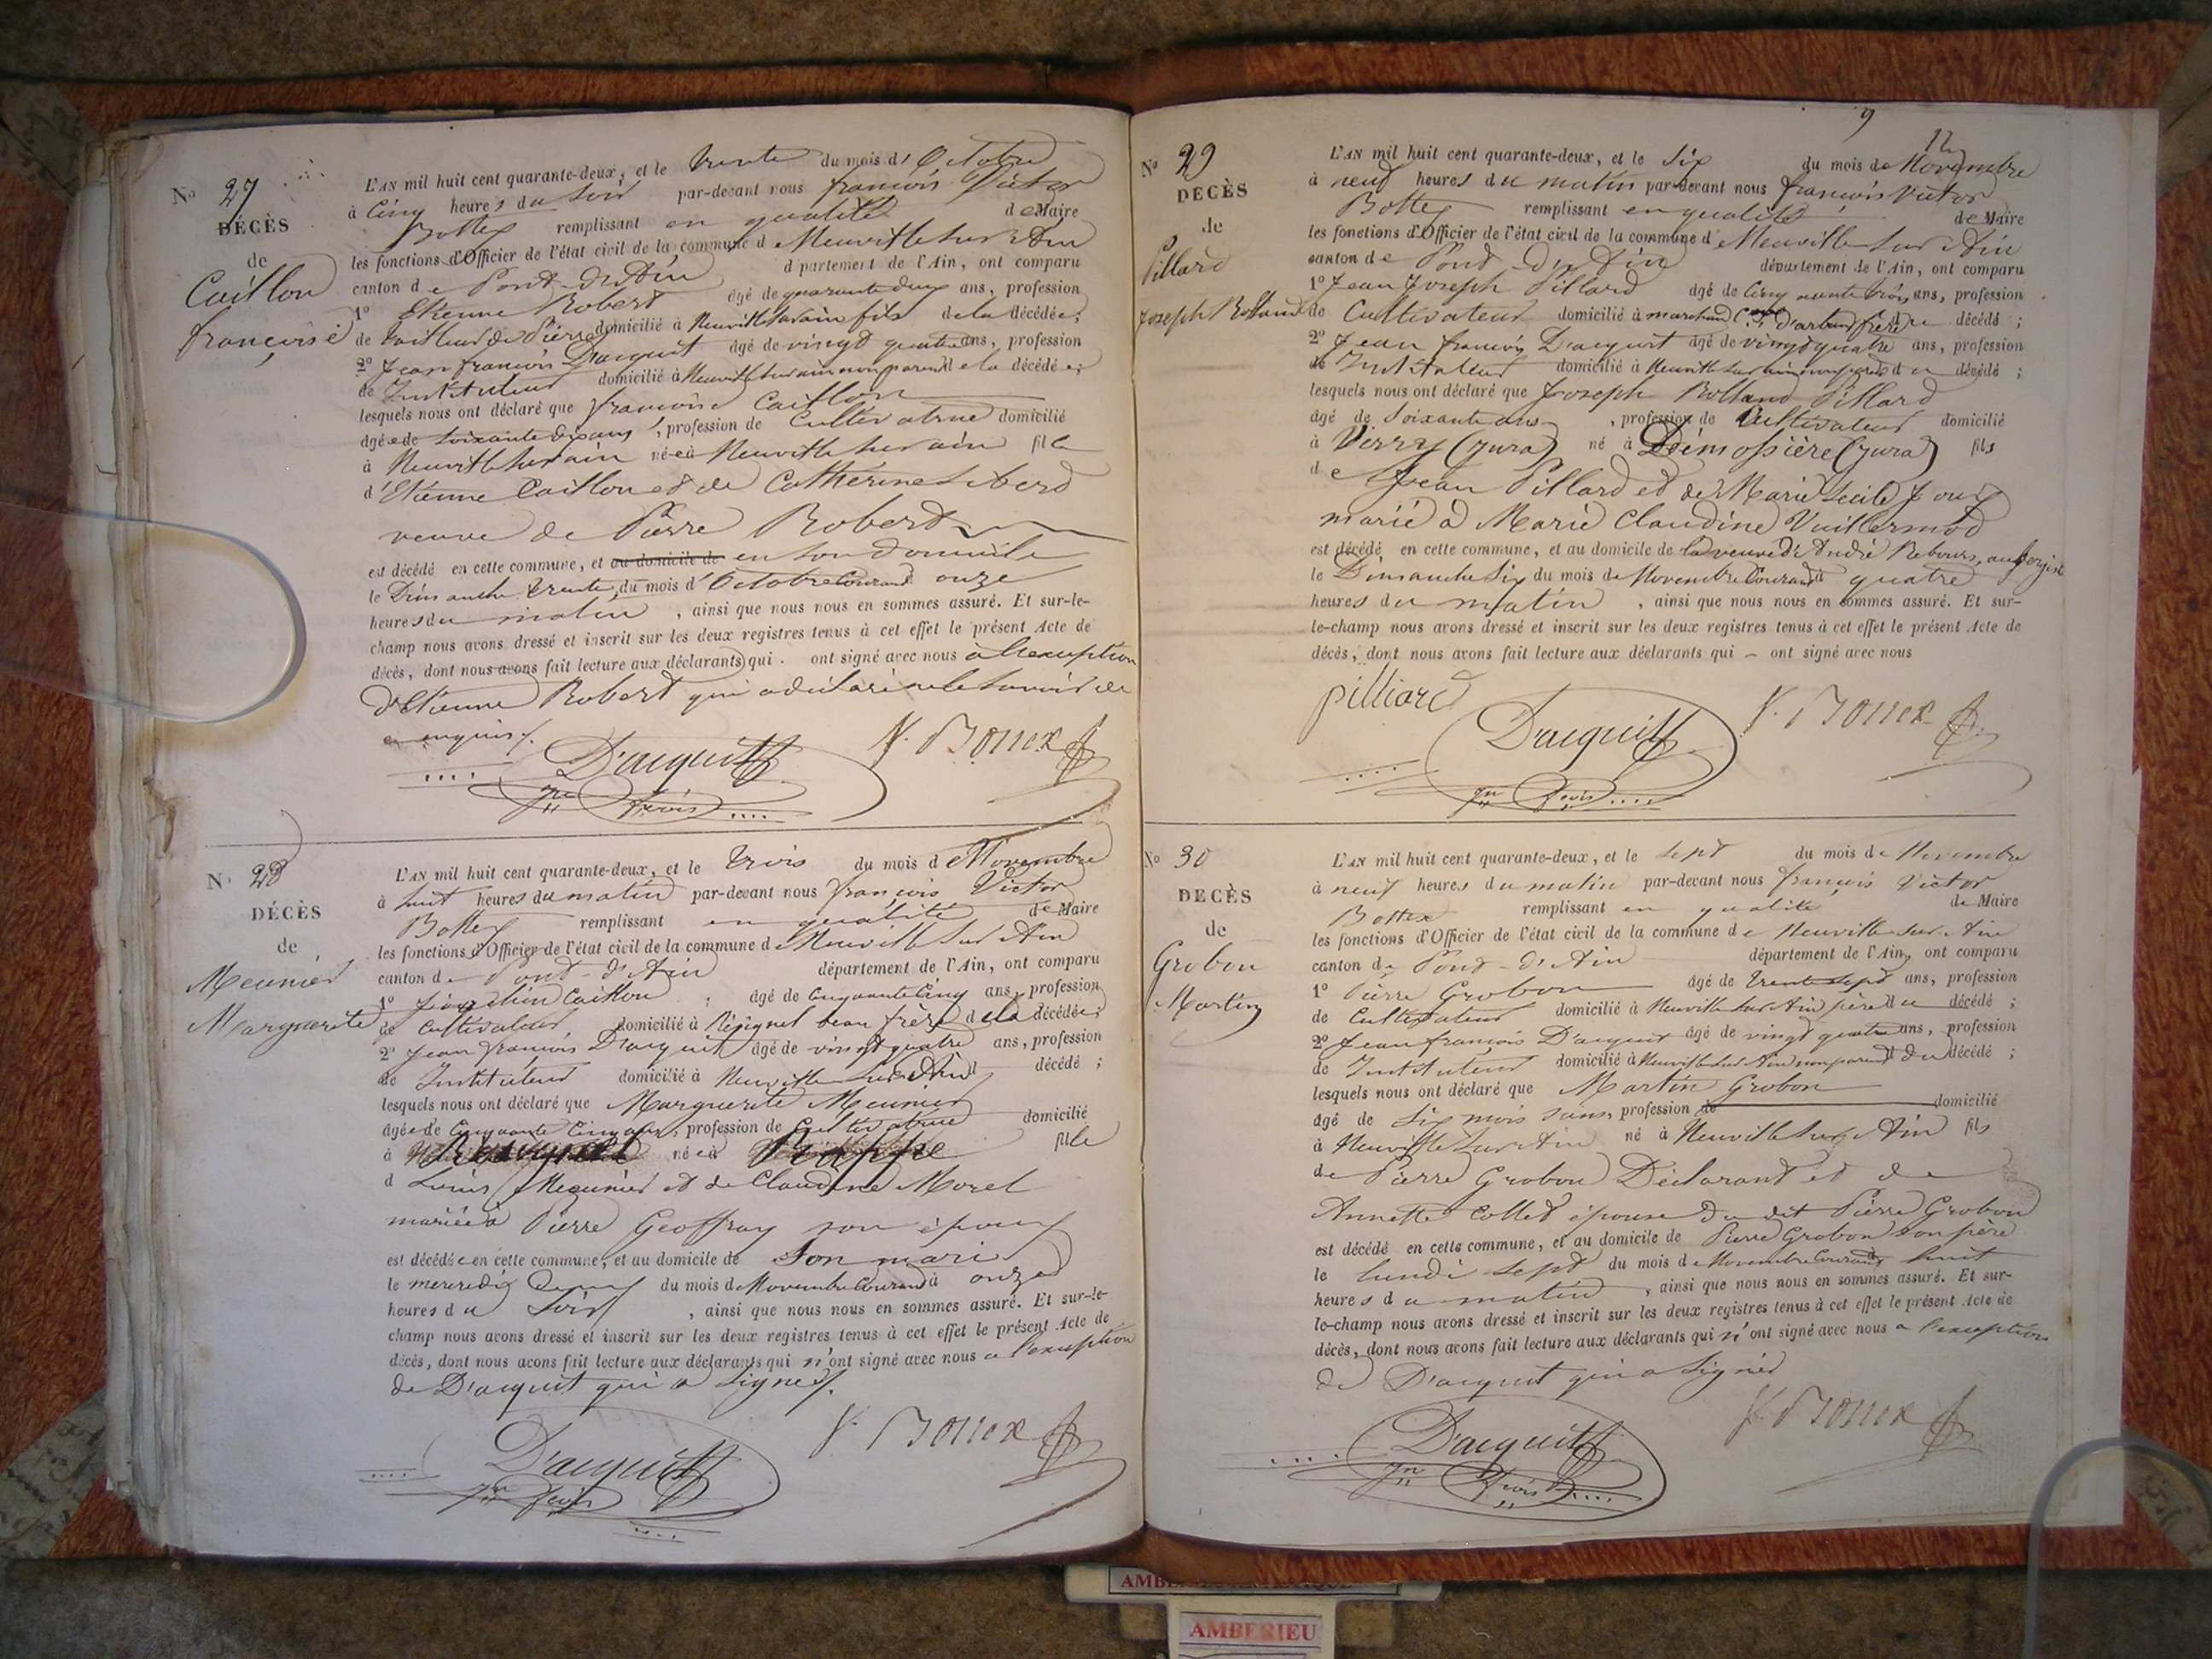 No 27
DÉCÈS
de
Caillon
françoise
L'AN mil huit cent quarante-deux, et le trente du mois d'Octobre
à Cinq heures du Soir par-devant nous françois Victor
Bottex remplissant en qualité de Maire
les fonctions d'Officier de l'état civil de la commune de Neuville Sur Ain
canton de Pont-d'Ain département de l'Ain, ont comparu
1o Etienne Robert âgé de quarante deux ans, profession
de tailleur de Pierre domicilié à Neuville sur ain fils de la décédée;
2o Jean françois D'acquit âgé de vingt quatre ans, profession
de Instituteur domicilié à Neuville sur ain non parent de la décédée;
lesquels nous ont déclaré que françoise Caillon
âgée de soixante dix ans, profession de Cultivatrice domicilié
à Neuville sur ain née à Neuville sur ain fille
d'Etienne Caillon et de Catherine Siberd
veuve de Pierre Robert
est décédé en cette commune, et au domicile de en son domicile
le Dimanche trente du mois d'Octobre Courant à onze
heures du matin, ainsi que nous nous en sommes assuré. Et sur-le-
champ nous avons dressé et inscrit sur les deux registres tenus à cet effet le présent Acte de
décès, dont nous avons fait lecture aux déclarants qui ont signé avec nous à l'exception
d'Etienne Robert qui a déclaré ne le savoir de
ce enquis.
D'acquit
Jn fçois
V. Bottex
No 28
DÉCÈS
de
Meunier
Marguerite
L'AN mil huit cent quarante-deux, et le trois du mois de Novembre
à huit heures du matin par-devant nous françois Victor
Bottex remplissant en qualité de Maire
les fonctions d'Officier de l'état civil de la commune de Neuville Sur Ain
canton de Pont-d'Ain département de l'Ain, ont comparu
1o Caillon âgé de Cinquante Cinq ans, profession
de Cultivateur, domicilié à Résignel beau frère de la décédée;
2o Jean françois D'acquit âgé de vingt quatre ans, profession
de Instituteur domicilié à Neuville Sur Ain décédé;
lesquels nous ont déclaré que Marguerite Meunier
âgée de Cinquante Cinq ans, profession de Cultivatrice domicilié
à née à fille
de Louis Meunier et de Claudine Morel
mariée à Pierre Geoffray son époux
est décédée en cette commune, et au domicile de Son mari
le mercredi Deux du mois de Novembre Courant à onze
heures du Soir, ainsi que nous nous en sommes assuré. Et sur-le-
champ nous avons dressé et inscrit sur les deux registres tenus à cet effet le présent Acte de
décès, dont nous avons fait lecture aux déclarants qui n'ont signé avec nous à l'exception
de D'acquit qui a Signé.
D'acquit
Jn fçois
V. Bottex
9
12
No 29
DÉCÈS
de
Pillard
Joseph Rolland
L'AN mil huit cent quarante-deux, et le Six du mois de Novembre
à neuf heures du matin par-devant nous françois Victor
Bottex remplissant en qualité de Maire
les fonctions d'Officier de l'état civil de la commune de Neuville Sur Ain
canton de Pont-d'Ain département de l'Ain, ont comparu
1o Jean Joseph Pillard âgé de Cinquante trois ans, profession
de Cultivateur domicilié à marchand frère du décédé;
2o Jean françois D'acquit âgé de vingt quatre ans, profession
de Instituteur domicilié à Neuville sur ain non parent du décédé;
lesquels nous ont déclaré que Joseph Rolland Pillard
âgé de Soixante ans, profession de Cultivateur domicilié
à Verry (jura) né à Démossière (jura) fils
de Jean Pillard et de Marie Cécile Joux
marié à Marie Claudine Vuillermod
est décédé en cette commune, et au domicile de la veuve de André Rebours, aubergiste
le Dimanche Six du mois de Novembre Courant à quatre
heures du matin, ainsi que nous nous en sommes assuré. Et sur-
le-champ nous avons dressé et inscrit sur les deux registres tenus à cet effet le présent Acte de
décès, dont nous avons fait lecture aux déclarants qui – ont signé avec nous
pilliard
D'acquit
Jn fçois
V. Bottex
No 30
DÉCÈS
de
Grobon
Martin
L'AN mil huit cent quarante-deux, et le Sept du mois de Novembre
à neuf heures du matin par-devant nous françois Victor
Bottex remplissant en qualité de Maire
les fonctions d'Officier de l'état civil de la commune de Neuville Sur Ain
canton de Pont-d'Ain département de l'Ain, ont comparu
1o Pierre Grobon âgé de trente Sept ans, profession
de Cultivateur domicilié à Neuville Sur Ain père du décédé;
2o Jean françois D'acquit âgé de vingt quatre ans, profession
de Instituteur domicilié à Neuville Sur Ain non parent du décédé;
lesquels nous ont déclaré que Martin Grobon
âgé de Six mois sans, profession de domicilié
à Neuville Sur Ain né à Neuville Sur Ain fils
de Pierre Grobon Déclarant et de
Annette Collet épouse du dit Pierre Grobon
est décédé en cette commune, et au domicile de Pierre Grobon son père
le lundi Sept du mois de Novembre Courant à huit
heures du matin, ainsi que nous nous en sommes assuré. Et sur-
le-champ nous avons dressé et inscrit sur les deux registres tenus à cet effet le présent Acte de
décès, dont nous avons fait lecture aux déclarants qui n'ont signé avec nous à l'exception
de D'acquit qui a Signé
D'acquit
Jn fçois
V. Bottex
AMBERIEU